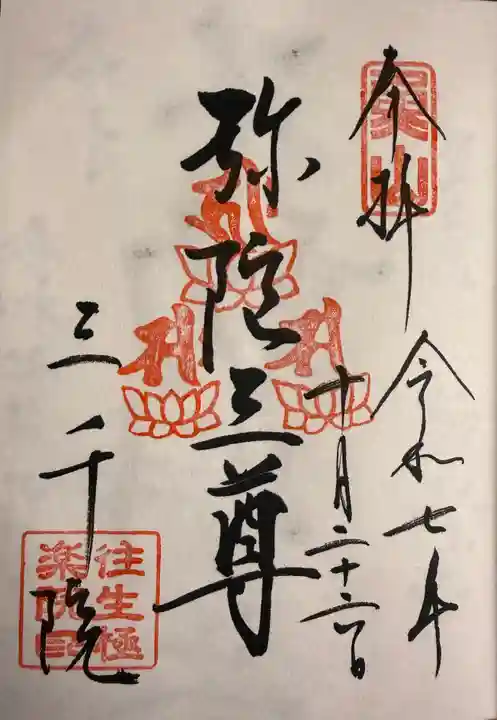 奉拝
令和七年
十月二十六日
弥陀三尊
三千院
梨山
往生極
楽院印